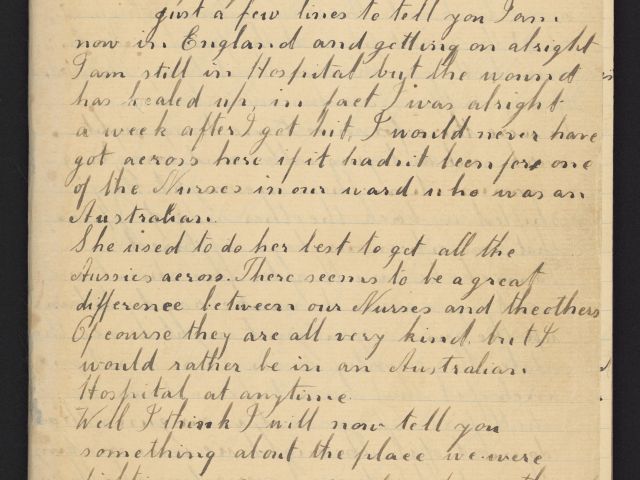 just a few lines to tell you I am
now in England and getting on alright
I am still in Hospital but the wound
has healed up, in fact I was alright
a week after I got hit, I would never have
got across here if it hadnt been for one
of the Nurses in our ward who was an
Australian.
She used to do her best to get all the
Aussies across. There seems to be a great
difference between our Nurses and the others
Of course they are all very kind. but I
would rather be in an Australian
Hospital at anytime.
Well I think I will now tell you
something about the place we were